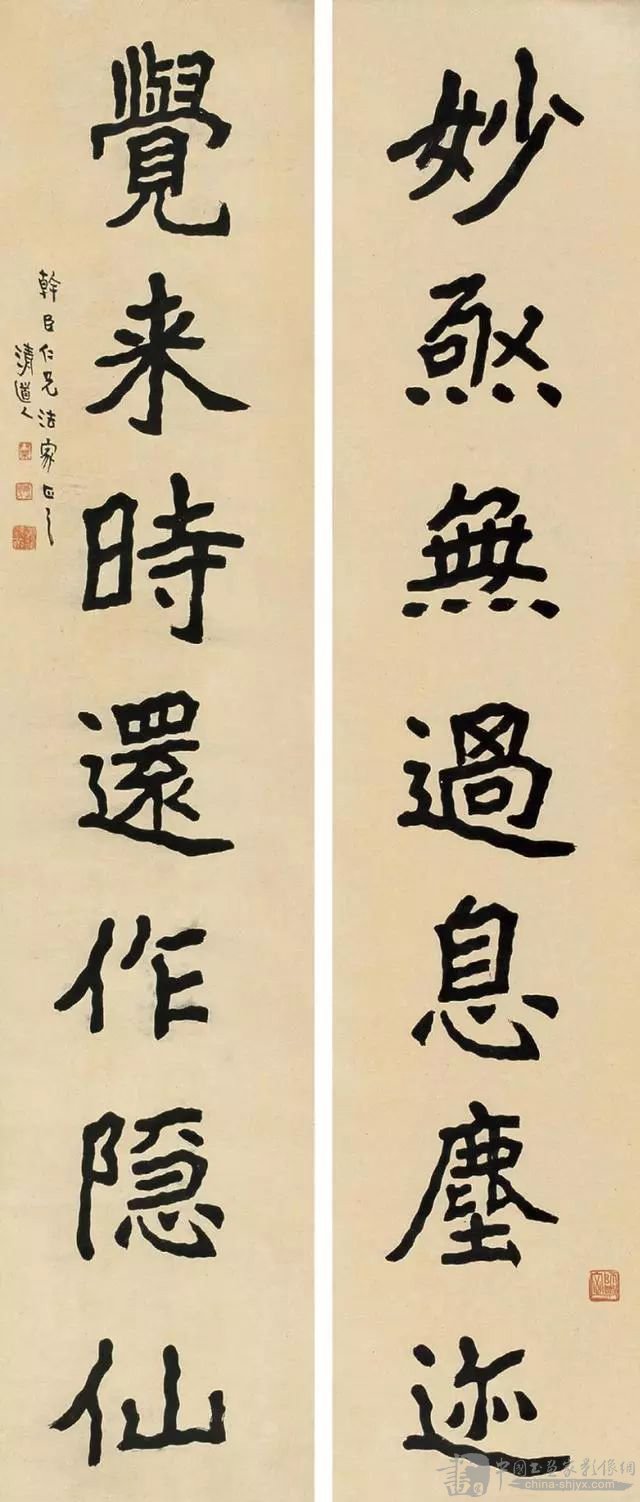 妙煞無過息塵迹
覺来時還作隐仙
幹臣仁兄法家正之
清道人
書
中國书画家影像網
www.china-shjyx.com